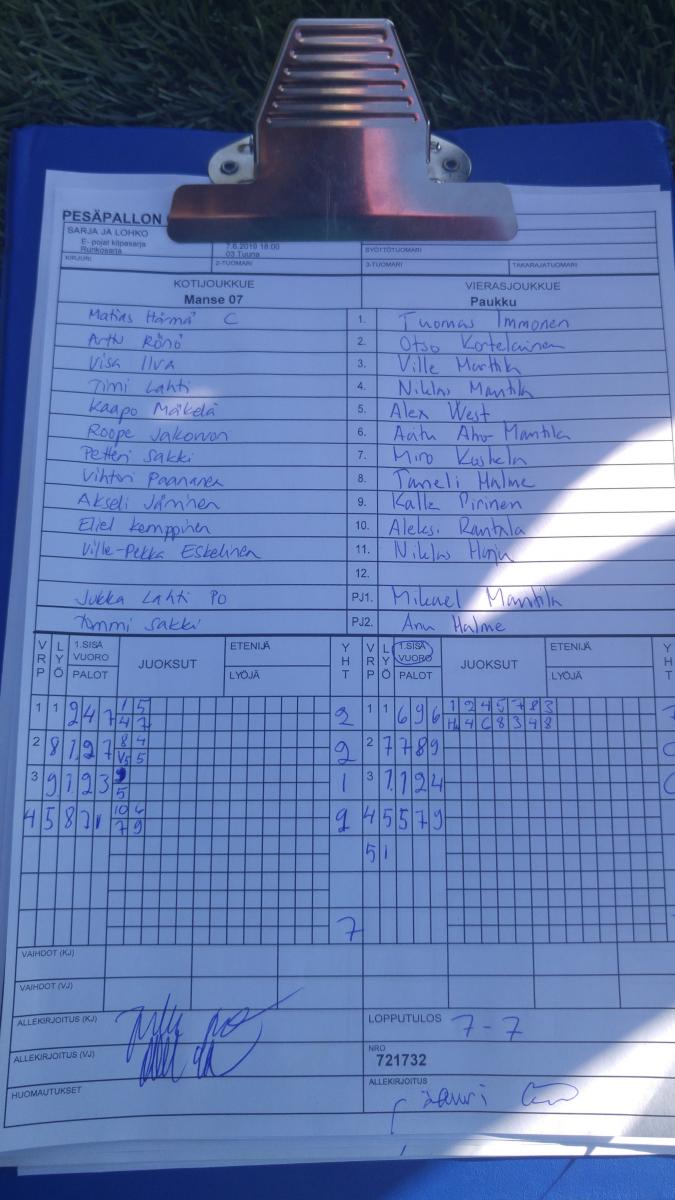 PESÄPALLON
SARJA JA LOHKO
E- pojat kilpasarja
Runkosarja
7.6.2019 18:00
03 Tuuna
SYÖTTÖTUOMARI
KIRJURI
2-TUOMARI
3-TUOMARI
TAKARAJATUOMARI
KOTIJOUKKUE
VIERASJOUKKUE
Manse 07
Paukku
Matias Härmä C 1. Tuomas Immonen
Arttu Rönö 2. Otso Kortelainen
Visa Ilva 3. Ville Marttila
Timi Lahti 4. Niklas Mantila
Kaapo Mäkelä 5. Alex West
Roope 6. Mantila
Petteri Sakki 7. Miro
Vihtori Paananen 8. Taneli Halme
Akseli 9. Kalle Pirinen
Eliel Kemppinen 10. Aleksi Rantala
Ville-Pekka Eskelinen 11. Niklas Harju
12.
Jukka Lahti PJ1. Mikael Mantila
Tommi Sakki PJ2. Anu Halme
VRP LYÖ 1.SISÄ VUORO PALOT JUOKSUT ETENIJÄ LYÖJÄ YHT VRP LYÖ 1.SISÄ VUORO PALOT JUOKSUT ETENIJÄ LYÖJÄ YHT
1 1 2 4 7 1 5 2 1 1 6 9 6 1 2 4 5 7 8 3
4 7 4 4 6 8 3 4 8
2 8 1 2 7 8 4 2 2 7 7 8 9
V5 5
3 9 1 2 3 9 1 3 1 1 2 4
5
4 5 8 10 6 2 4 5 5 7 9
7 9
5 1
7
VAIHDOT (KJ)
VAIHDOT (VJ)
ALLEKIRJOITUS (KJ)
LOPPUTULOS 7-7
ALLEKIRJOITUS (VJ)
NRO
721732
HUOMAUTUKSET
ALLEKIRJOITUS